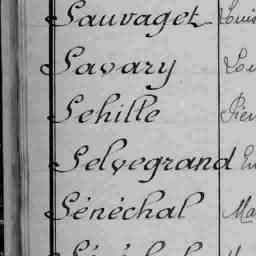 Sauvaget Louis
Savary Lou
Sehille Pier
Selvegrand Em
Sénéchal Ma